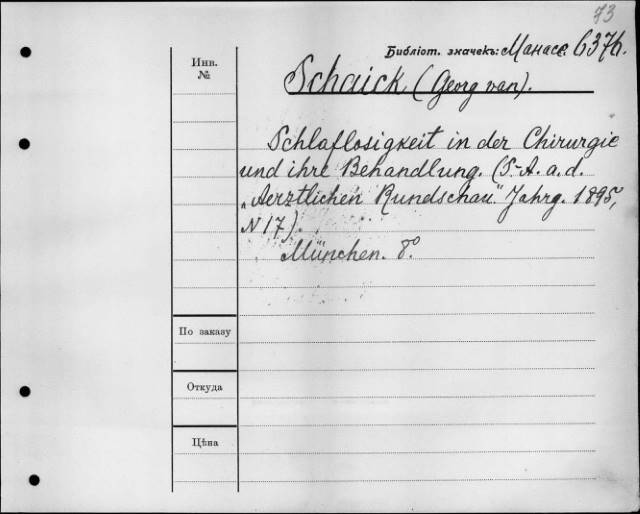 73
Библіот. значекъ: Манасс. 6376.
Инв.
№
Schaick (Georg van).
Schlaflosigkeit in der Chirurgie
und ihre Behandlung. (S.-A. a. d.
„Aerztlichen Rundschau." Jahrg. 1895,
N 17).
München. 8°
По заказу
Откуда
Цѣна